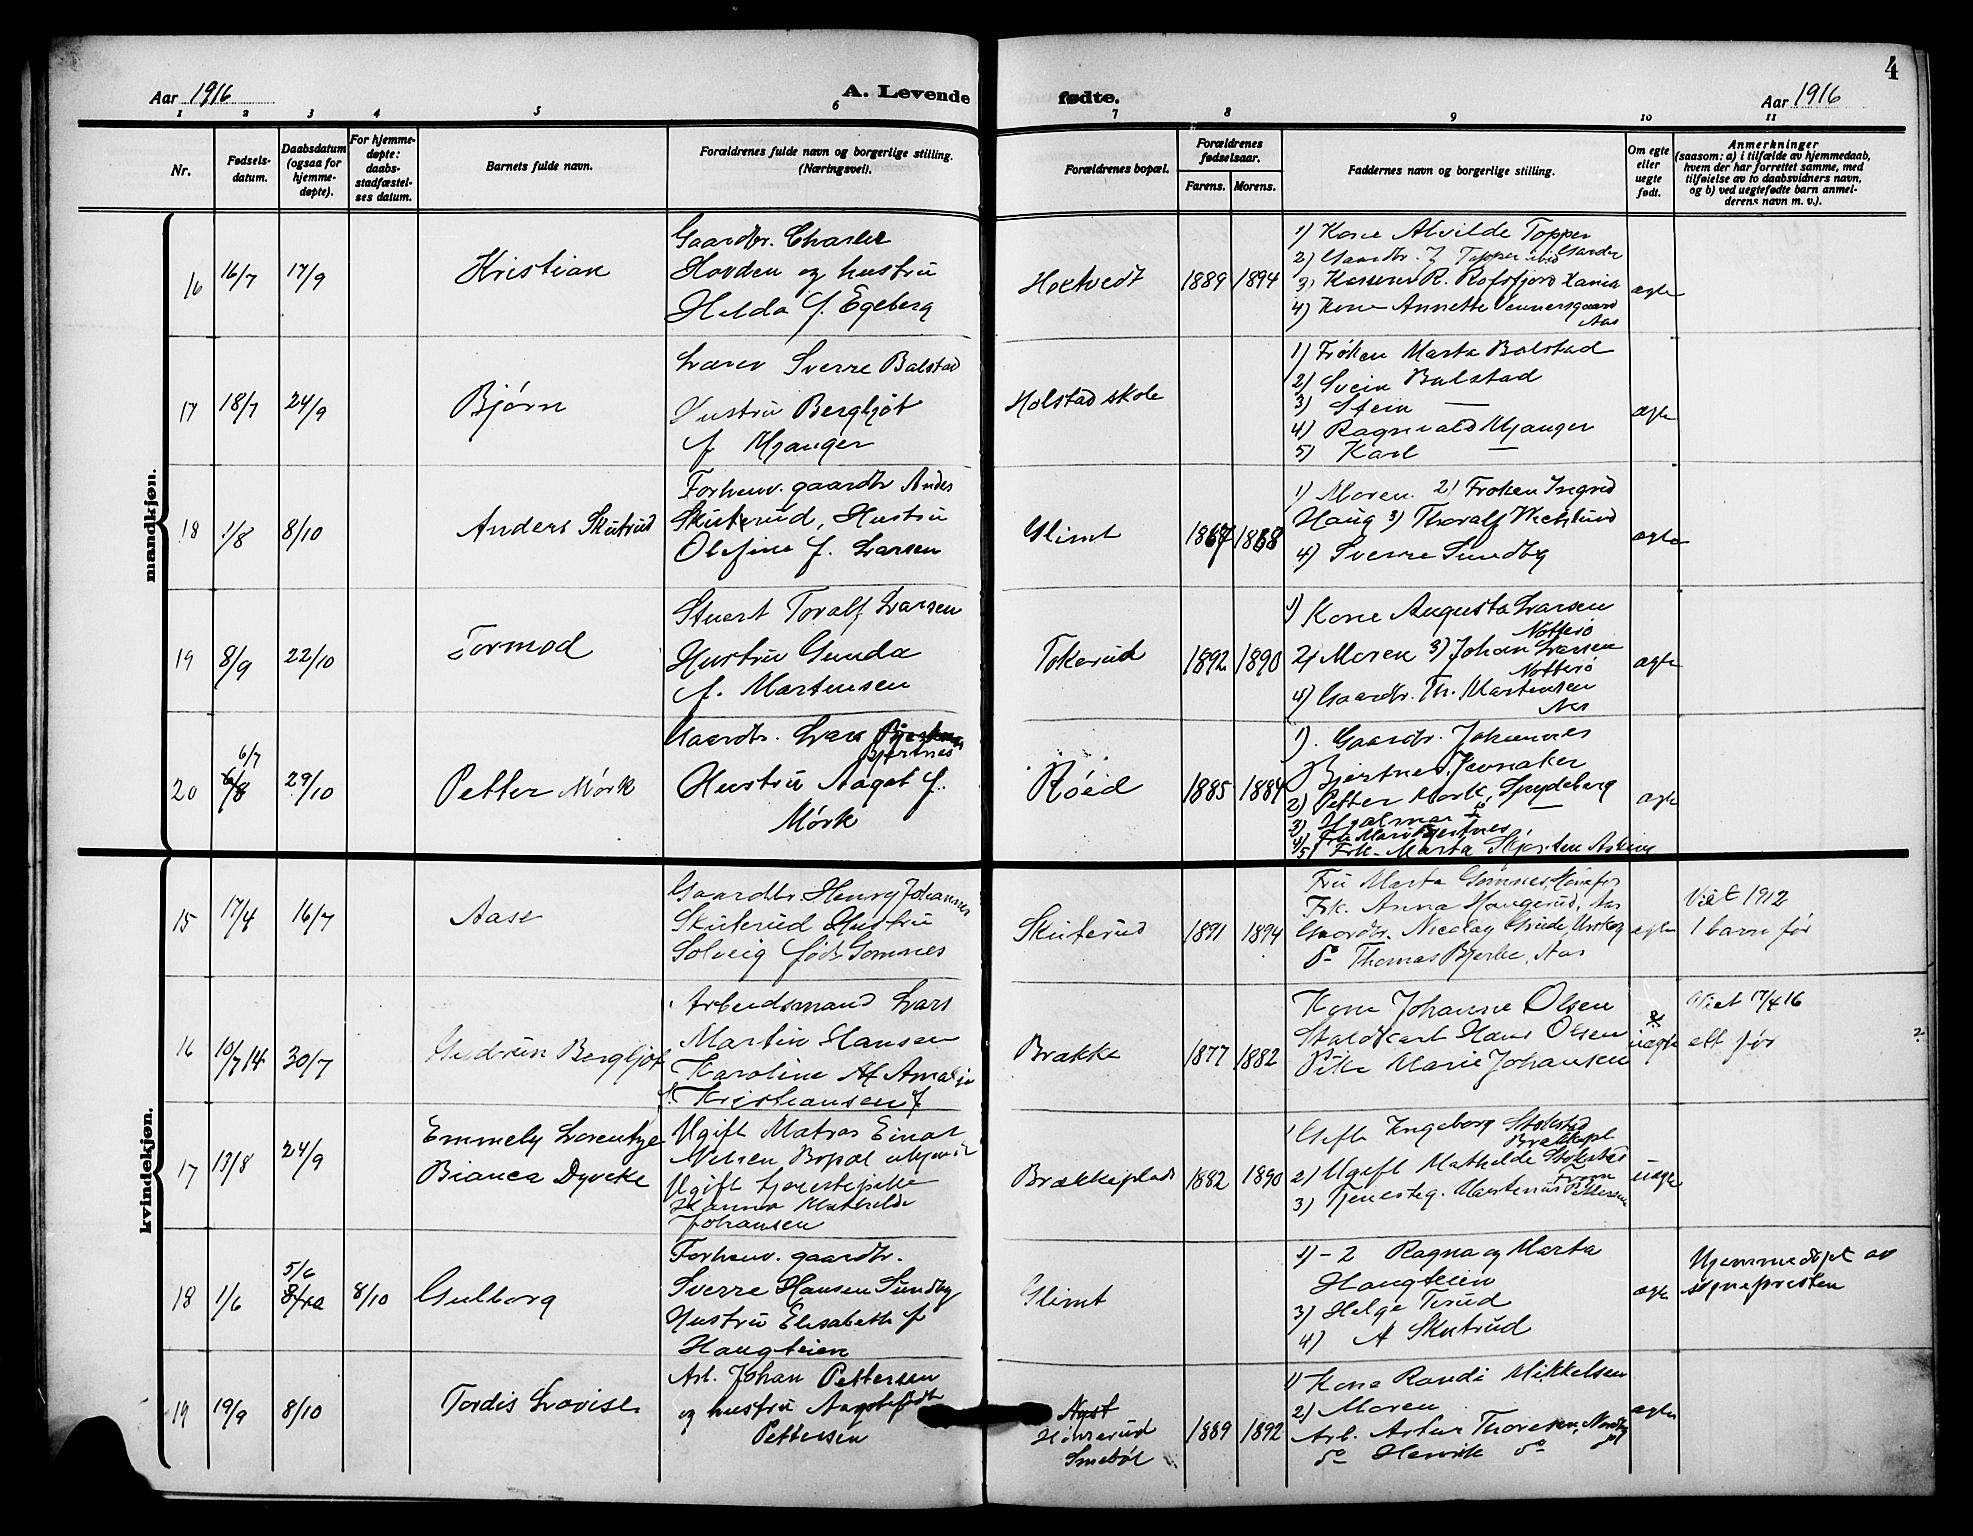 4
Aar 1916
A. Levende fødte.
Aar 1916
1 2 3 4 5 6 7 8 9 10 11
Nr.
Fødsels-
datum.
Daabsdatum
(ogsaa for
hjemme-
døpte).
For hjemme-
døpte:
daabs-
stadfæstel-
ses datum.
Barnets fulde navn.
Forældrenes fulde navn og borgerlige stilling.
(Næringsvei).
Forældrenes bopæl.
Forældrenes
fødselsaar.
Farens. Morens.
Faddernes navn og borgerlige stilling.
Om egte
eller
uegte
født.
Anmerkninger
(saasom: a) i tilfælde av hjemmedaab,
hvem der har forrettet samme, med
tilføielse av to daabsvidners navn,
og b) ved uegtefødte barn anmel-
derens navn m. v.).
mandkjøn.
16 16/7 17/9 Kristian
Gaardbr. Charles
Hovden og hustru
Helda f. Egeberg
1889 1894
1) Kone Alvilde Topper
2) Gaardbr. J Topper
4) Kone Annette Vennersgaard
Aas
ægte
17 18/7 24/9 Bjørn
Lærer Sverre Balstad
Hustru Bergljot
f Mjanger
Holstad skole
1) Frøken Marta Balstad
2) Svein Balstad
3) Stein —
4) Ragnvald Mjanger
5) Karl —
ægte
18 1/8 8/10 Anders Skuterud
Forhenv. gaardbr Andes
Skuterud, Hustru
Olefine f. Larsen
Glimt
1867 1868
1) Moren. 2) Frøken Ingrid
Haug 3) Thoralf
4) Sverre Sundby
ægte
19 8/9 22/10 Tormod
Stuert Toralf Larsen
Hustru Gunda
f. Martensen
Tokerud
1892 1890
1) Kone Augusta Larsen
Nøtterø
2) Moren 3) Johan Larsen
Nøtterø
4) Gaardbr. Th. Martensen
Aas
ægte
20 6/7 6/8 29/10 Petter Mørk
Gaardbr. Lars
Bjertnes
Hustru Aagot f.
Mørk
Røed
1885 1884
1). Gaardbr. Johannes
Bjertnes, Jevnaker
2) Petter Mørk, Spydeberg
3) Hjalmar
4) Frk Mari Bjertnes
5) Frk. Marta Skjørten Askim
ægte
kvindekjøn.
15 17/4 16/7 Aase
Gaardbr. Henry Johannes
Skuterud Hustru
Solveig født Gomnes
Skuterud
1891 1894
Fru Marta Gomnes, Hønefos
Frk. Anna Haugerud, Aas
Gaardbr. Nicolay Grude, Urskog
do Thomas Bjerke, Aas
egte
Viet 1912
1 barn før
16 10/7 14 30/7 Gudrun Bergljot
Arbeidsmand Lars
Martin Hansen
Karoline Amalie
f. Kristiansen
Brække
1877 1882
Kone Johanne Olsen
Staldkarl Hans Olsen
Pike Marie Johansen
uægte
Viet 17/4 16
ett før
?
17 13/8 24/9
Emmely Lorentze
Bianca Dyveke
Ugift Matros Einar
Nilsen Bopæl ukjendt
Ugift tjenestepike
Hanna Mathilde
Johansen
Brækkeplads
1882 1890
1 Gift Ingeborg Stokstad
Brækkepl
2) Ugift Mathilde Stokstad
3) Tjenesteg. Martinius Pettersen
uægte
18 1/6 5/6 8/10 8/10 Gulborg
Forhenv. gaardbr.
Sverre Hansen Sundby
Hustru Elisabeth f
Haugteien
Glimt
1) - 2 Ragna og Marta
Haugteien
3) Helge Terud
4) A Skuterud
ægte
Hjemmedøpt av
sognepresten
19 19/9 8/10 Tordis Lovise
Arb. Johan Pettersen
og hustru Aagot født
Pettersen
Smebøl
1889 1892
1) Kone Randi Mikkelsen
2) Moren
Arb. Artur Thoresen, Nordby
do Henrik do
ægte